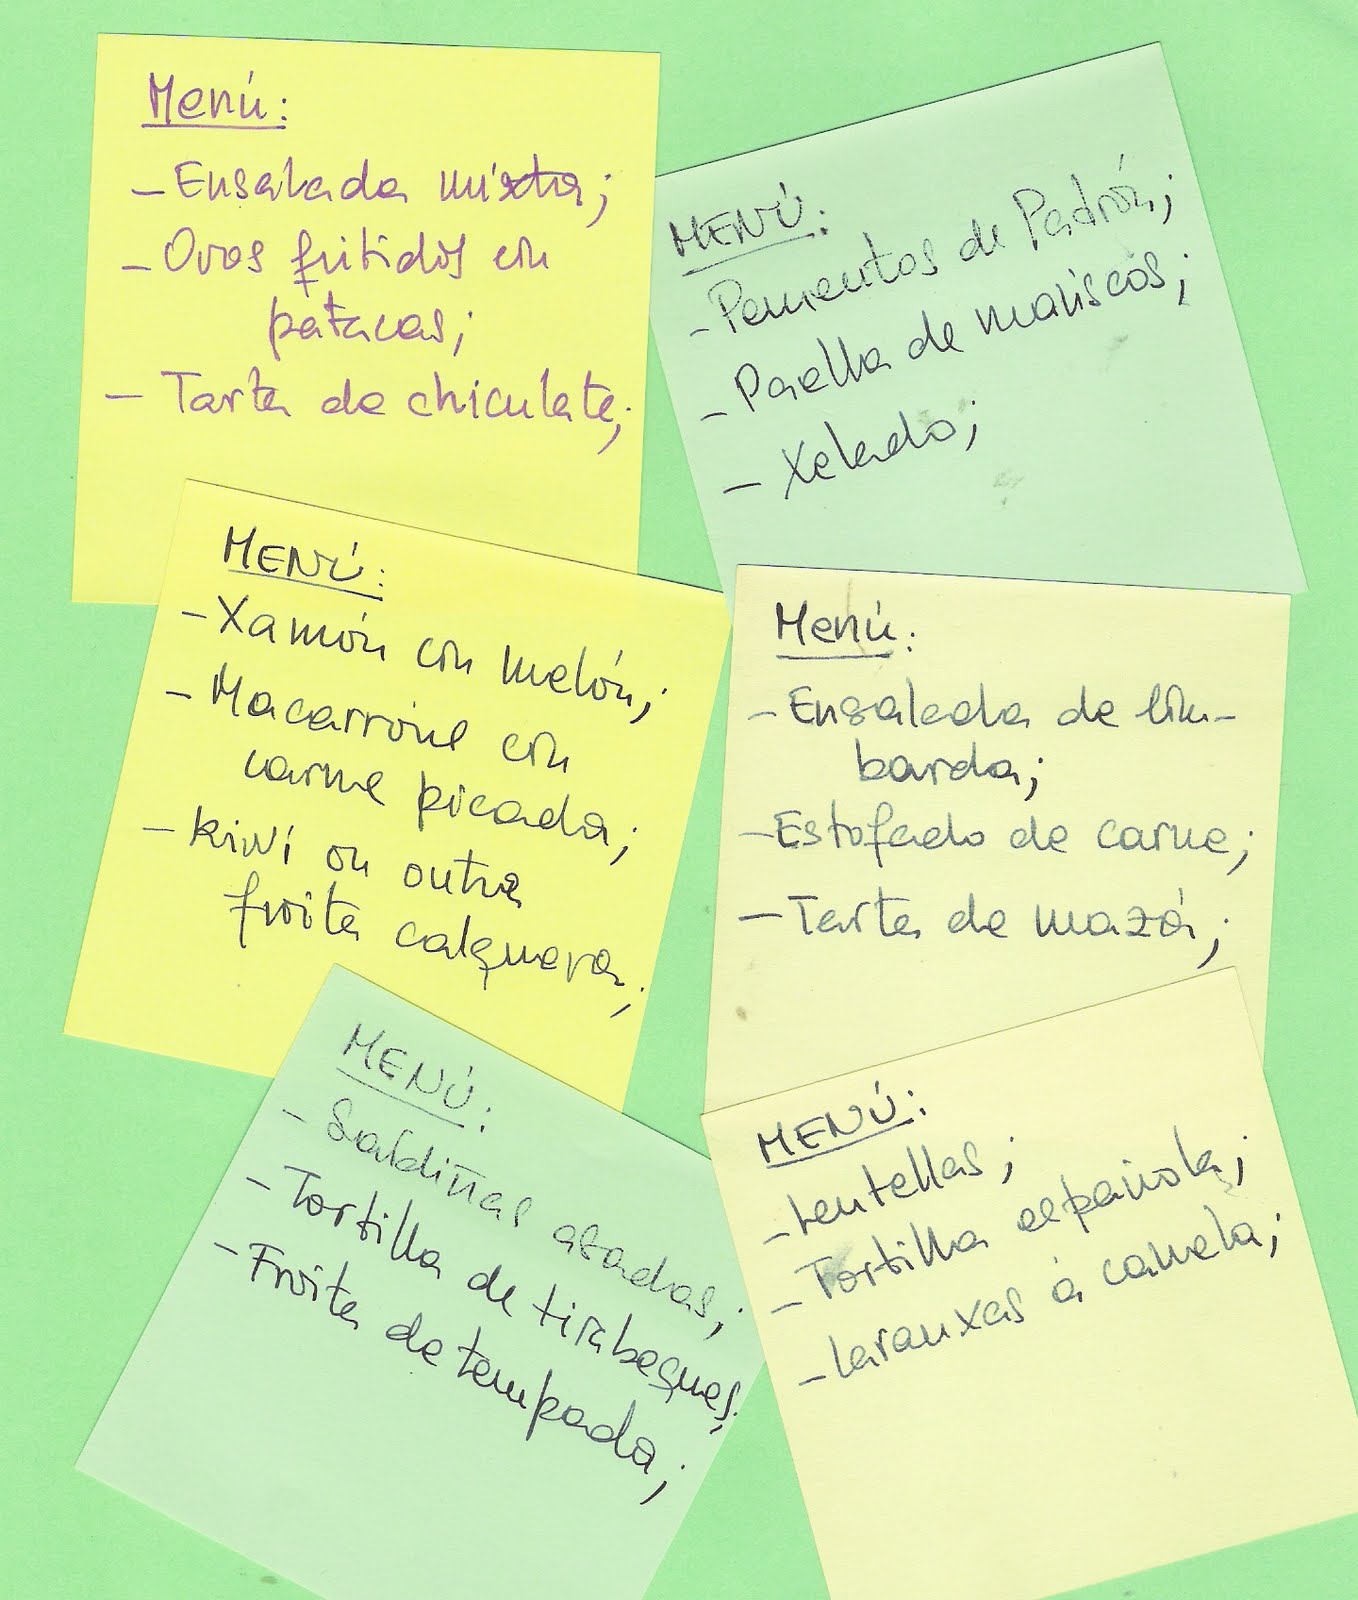 Menú:
- Ensalada mixta;
- Ovos fritidos con
patacas;
- Tarta de chiculate;
MENÚ:
- Pementos de Padrón;
- Paella de mariscos;
- Xelado;
MENÚ:
- Xamón con melón;
- Macarróns con
carne picada;
- Kiwi ou outra
froita calquera;
Menú:
- Ensalada de lom-
barda;
- Estofado de carne;
- Tarta de mazá;
MENÚ:
- Sardiñas asadas;
- Tortilla de tirabeques;
- Froita de tempada;
MENÚ:
- Lentellas;
- Tortilla española;
- Laranxas á canela;